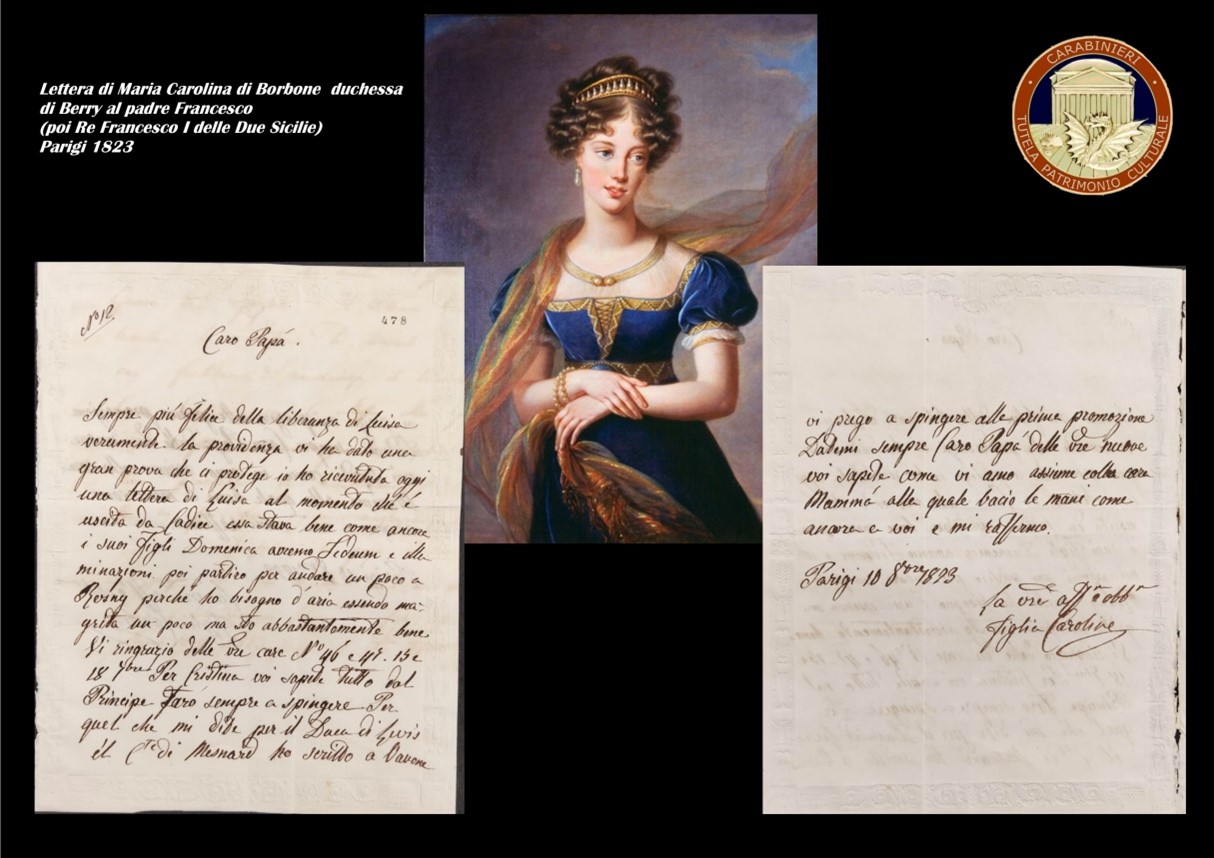 Lettera di Maria Carolina di Borbone duchessa
di Berry al padre Francesco
(poi Re Francesco I delle Due Sicilie)
Parigi 1823
CARABINIERI
TUTELA PATRIMONIO CULTURALE
N° 12.
478
Caro Papá.
Sempre piú felice della liberanza di Luisa
veramente la providenza vi ha dato una
gran prova che ci protege io ho ricevuta oggi
una lettera di Luisa al momento che é
uscita da Cadice essa stava bene come ancora
i suoi figli Domenica avremo Tedeum e illu
minazioni poi partiro per andare un poco a
Rosny perché ho bisogno d'aria essendo ma-
grita un poco ma sto abbastantamente bene
Vi ringrazio delle vre care N° 46 e 47. 15 e
18 7bre Per Cristina voi sapete tutto dal
Principe Faró sempre a spingere Per
quel che mi dite per il Duca di
il Cte di Mesnard ho scritto a
vi prego a spingere alla prima promozione
Datemi sempre Caro Papa delle vre nuove
voi sapete come vi amo assieme colla cara
Mammá alla quale bacio le mani come
ancora a voi e mi raffermo.
Parigi 10 8bre 1823
La vra affa obba
figlia Caroline